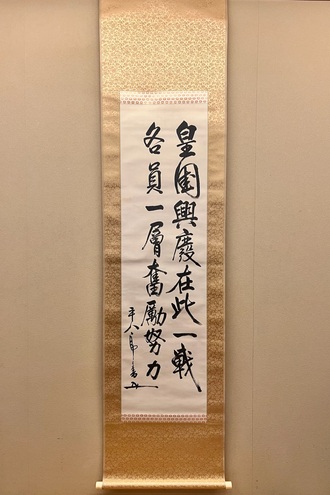 皇國興廢在此一戦
各員一層奮勵努力
平八郎書